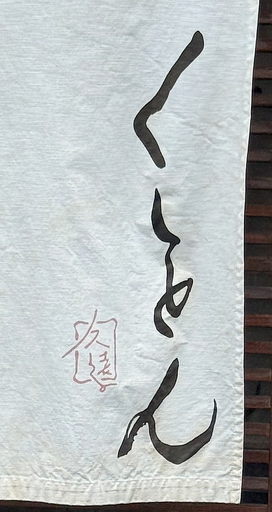 くをん
久遠